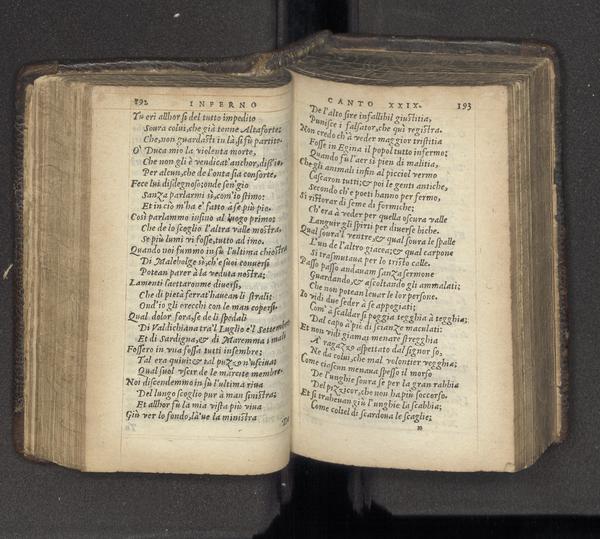 192 INFERNO
Tu eri allhor si del tutto impedito
Soura colui, che già tenne Altaforte;
Che, non guardasti in là, si fu partito.
O Duca mio la violenta morte,
Che non gli è vendicat'anchor, diss'io,
Per alcun, che de l'onta sia consorte,
Fece lui disdegnoso; onde sen'gio
Sanza parlarmi sì, com'io stimo:
Et in ciò m'ha e' fatto a se più pio.
Così parlammo insino al luogo primo;
Che de lo scoglio l'altra valle mostra,
Se più lumi vi fosse, tutto ad imo.
Quando noi fummo in sù l'ultima chiostra
Di Malebolge sì, ch'e suoi conuersi
Potean parer à la veduta nostra;
Lamenti saettaronme diuersi,
Che di pietà ferrat'haueun li strali:
Ond'io gli orecchi con le man copersi.
Qual dolor fora, se de li spedali
Di Valdichiana tra'l Luglio e'l Settembre,
Et di Sardigna, & di Maremma i mali
Fossero in vna fossa tutti insembre;
Tal era quiui: & tal puzzo n'usciua;
Qual suol vscir de le marcite membre.
Noi discendemmo in sù l'ultima riua
Del lungo scoglio pur à man sinistra;
Et allhor fù la mia vista più viua
Giù ver lo fondo, là 've la ministra
CANTO XXIX. 193
De l'alto sire infallibil giustitia,
Punisce i falsator, che quì registra.
Non credo ch'à veder maggior tristitia
Fosse in Egina il popol tutto infermo;
Quando fù l'aer sì pien di malitia,
Che gli animali infin al picciol vermo
Cascaron tutti; & poi le genti antiche,
Secondo ch'e poeti hanno per fermo,
Si ristorar di seme di formiche;
Ch'era à veder per quella oscura valle
Languir gli spirti per diuerse biche.
Qual soura'l ventre, & qual soura le spalle
L'un de l'altro giacea; & qual carpone
Si trasmutaua per lo tristo calle.
Passo passo andauam sanza sermone
Guardando, & ascoltando gli ammalati;
Che non potean leuar le lor persone.
Io vidi due seder à se appogiati;
Com' à scaldar si poggia tegghia à tegghia;
Dal capo à piè di scianze maculati:
Et non vidi giamai menare stregghia
A ragazzo aspettato dal signor so,
Ne da colui, che mal volontier vegghia;
Come ciascun menaua spesso il morso
De l'unghie soura se per la gran rabbia
Del pizzicor, che non ha più soccorso.
Et si trahean giù l'unghie la scabbia;
Come coltel di scardoua le scaglie;